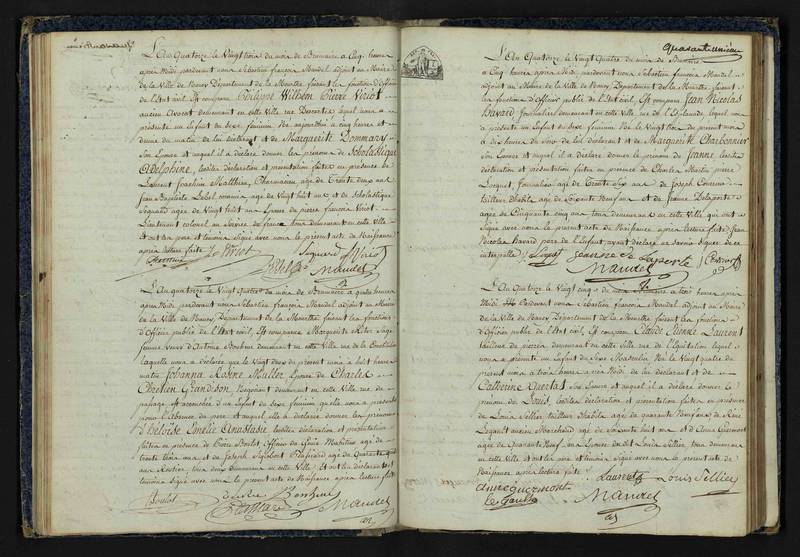 L'An Quatorze le Vingt trois du mois de Brumaire a Cinq heures
après Midi pardevant nous Sébastien françois Mandel adjoint au Maire
de la Ville de Nancy Département de la Meurthe faisant les fonctions d'Officier
de l'Etat civil, Est comparu Philippe Wilhem Pierre Viriot
ancien Avocat demeurant en cette Ville rue Descartes lequel nous a
présenté un Enfant du Sexe féminin Né aujourd'hui a cinq heures et
demie du matin de lui déclarant et de Marguerite Dommary
Son Epouse et auquel il a déclaré donner les prénoms de Scholastique
Adelphine, lesdites déclaration et présentation faites en présence de
Laurent Joachim Matthieu, Pharmacien agé de Trente deux ans
Jean Baptiste Lebel commis agé de Vingt huit ans et de Scholastique
agée de Vingt huit ans Epouse de pierre françois Viriot
Lieutenant colonel au Service de france tous demeurant en cette Ville
et ont les pere et temoins signé avec nous le présent acte de Naissance
après lecture faite
Viriot
Mandel
L'An quatorze le Vingt Quatre du mois de Brumaire a quatre heures
après Midi pardevant nous Sébastien françois Mandel adjoint au Maire
de la Ville de Nancy Département de la Meurthe faisant les fonctions
d'Officier public de l'Etat civil, Est comparue Marguerite Sage
femme Veuve d'Antoine demeurant en cette Ville rue de la Constitution
laquelle nous a déclaré que le Vingt deux du présent mois a huit heures
matin Johanna Rosine Muller Epouse de Charles
Chretien Grandson Négociant demeurant en cette Ville rue du
passage est accouchée d'un Enfant du Sexe féminin quelle nous a présenté
pour l'Absence du pere et auquel elle a déclaré donner les prénoms
d'Heloïse Emelie Anastasie lesdites déclaration et présentation
faites en présence de Pierre Boulet Officier du Génie Maritime agé de
trente trois ans et de Joseph agé de Quarante
ans tous deux demeurant en cette Ville Et ont les déclarante et
témoins signé avec nous le présent acte de Naissance après lecture faite
Boulet
Mandel
Quarante unieme
L'An Quatorze le Vingt Quatre du mois de Brumaire
a Cinq heures après Midi pardevant nous Sébastien françois Mandel
adjoint au Maire de la Ville de Nancy Département de la Meurthe faisant
les fonctions d'Officier public de l'Etat civil, Est comparu Jean Nicolas
Havard, journalier demeurant en cette Ville rue de l'Esplanade lequel nous
a présenté un Enfant du Sexe féminin Né le Vingt trois du présent mois
a dix heures du Soir de lui déclarant et de Marguerite Charbonnier
Son Epouse et auquel il a déclaré donner le prénom de Jeanne lesdites
déclaration et présentation faites en présence de Charles Martin pierre
journalier agé de Trente Six ans de Joseph
tailleur d'habits agé de Soixante Neuf ans et de Jeanne Delaporte
agée de Cinquante cinq ans tous demeurant en cette Ville qui ont
signé avec nous le présent acte de Naissance après lecture faite, Jean
Nicolas Havard pere de l'Enfant ayant déclaré ne savoir signer de ce
interpellé
Jeanne de Laporte
Mandel
L'An Quatorze le Vingt cinq du mois de Brumaire a trois heures après
Midi Pardevant nous Sébastien françois Mandel adjoint au Maire
de la Ville de Nancy Département de la Meurthe faisant les fonctions
d'Officier public de l'Etat civil, Est comparu Claude Etienne Laurent
tailleur de pierres demeurant en cette Ville rue de l'Equitation lequel
nous a présenté un Enfant du Sexe Masculin Né le Vingt quatre du
présent mois a trois heures après Midi de lui déclarant et de
Catherine Guertas Son Epouse et auquel il a déclaré donner le
prénom de Louis, lesdites déclaration et présentation faites en présence
de Louis Tellier tailleur d'habits agé de quarante Neuf ans de René
Legault ancien Marchand agé de Soixante huit ans et d'Anne Quermont
agée de Quarante Neuf ans Epouse dudit Louis Tellier, tous demeurant
en cette Ville et ont les pere et temoins signé avec nous le présent acte de
Naissance après lecture faite
Laurent
Louis Tellier
anne quermont
Le Gault
Mandel